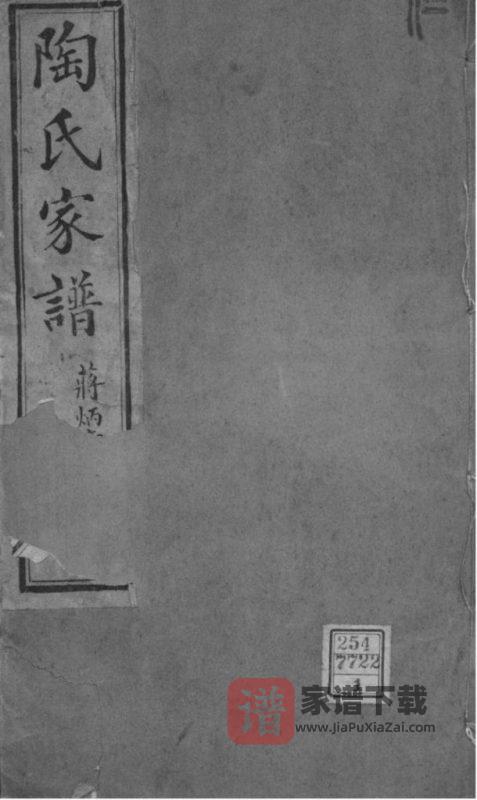 陶氏家譜
蔣炳
仁
254
7722
1
谱 家谱下载
www.JiaPuXiaZai.com